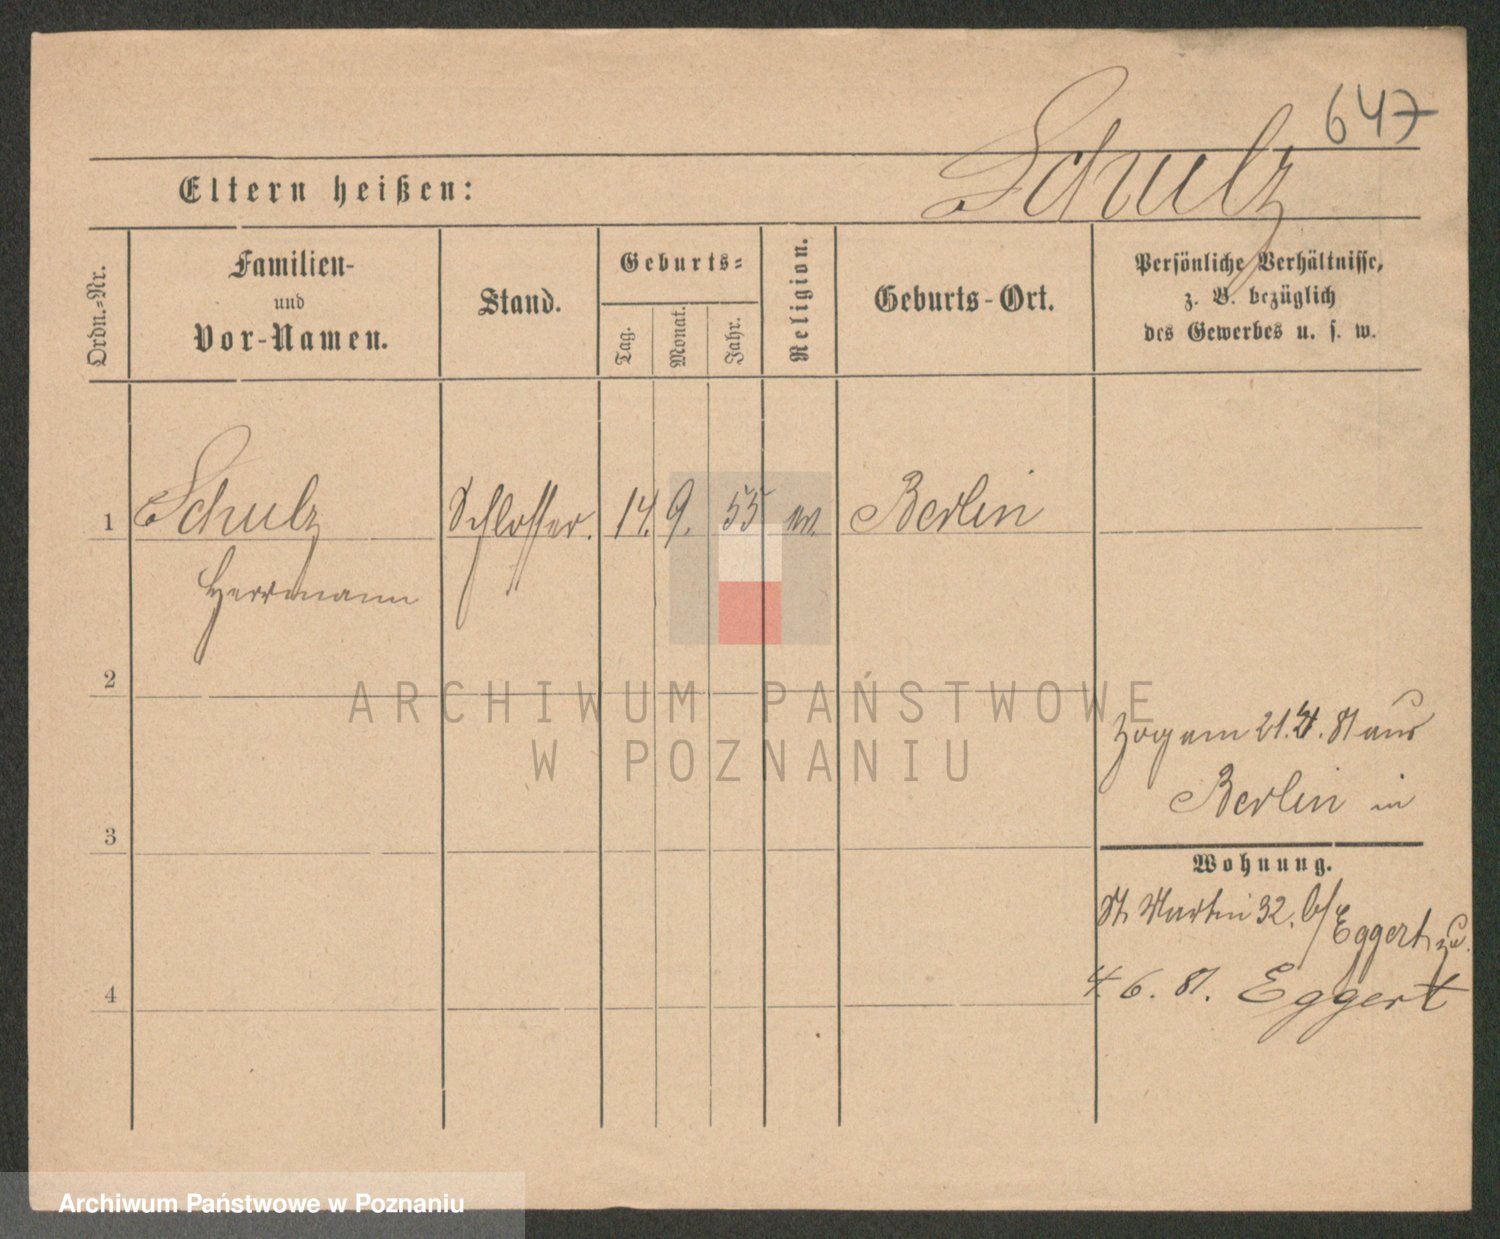 647
Schulz
Eltern heißen:
Ordn.-Nr.
Familien-
und
Vor-Namen.
Stand.
Geburts-
Tag.
Monat.
Jahr.
Religion.
Geburts-Ort.
Persönliche Verhältnisse,
z. B. bezüglich
des Gewerbes u. s. w.
1
Schulz
Herrmann
Schlosser.
14.
9.
55
Berlin
2
ARCHIWUM PAŃSTWOWE
W POZNANIU
zog am 21. 4. 81 aus
Berlin in
3
Wohnung.
St. Martin 32. b/
Eggert zu.
4
4. 6. 81. Eggert
Archiwum Państwowe w Poznaniu